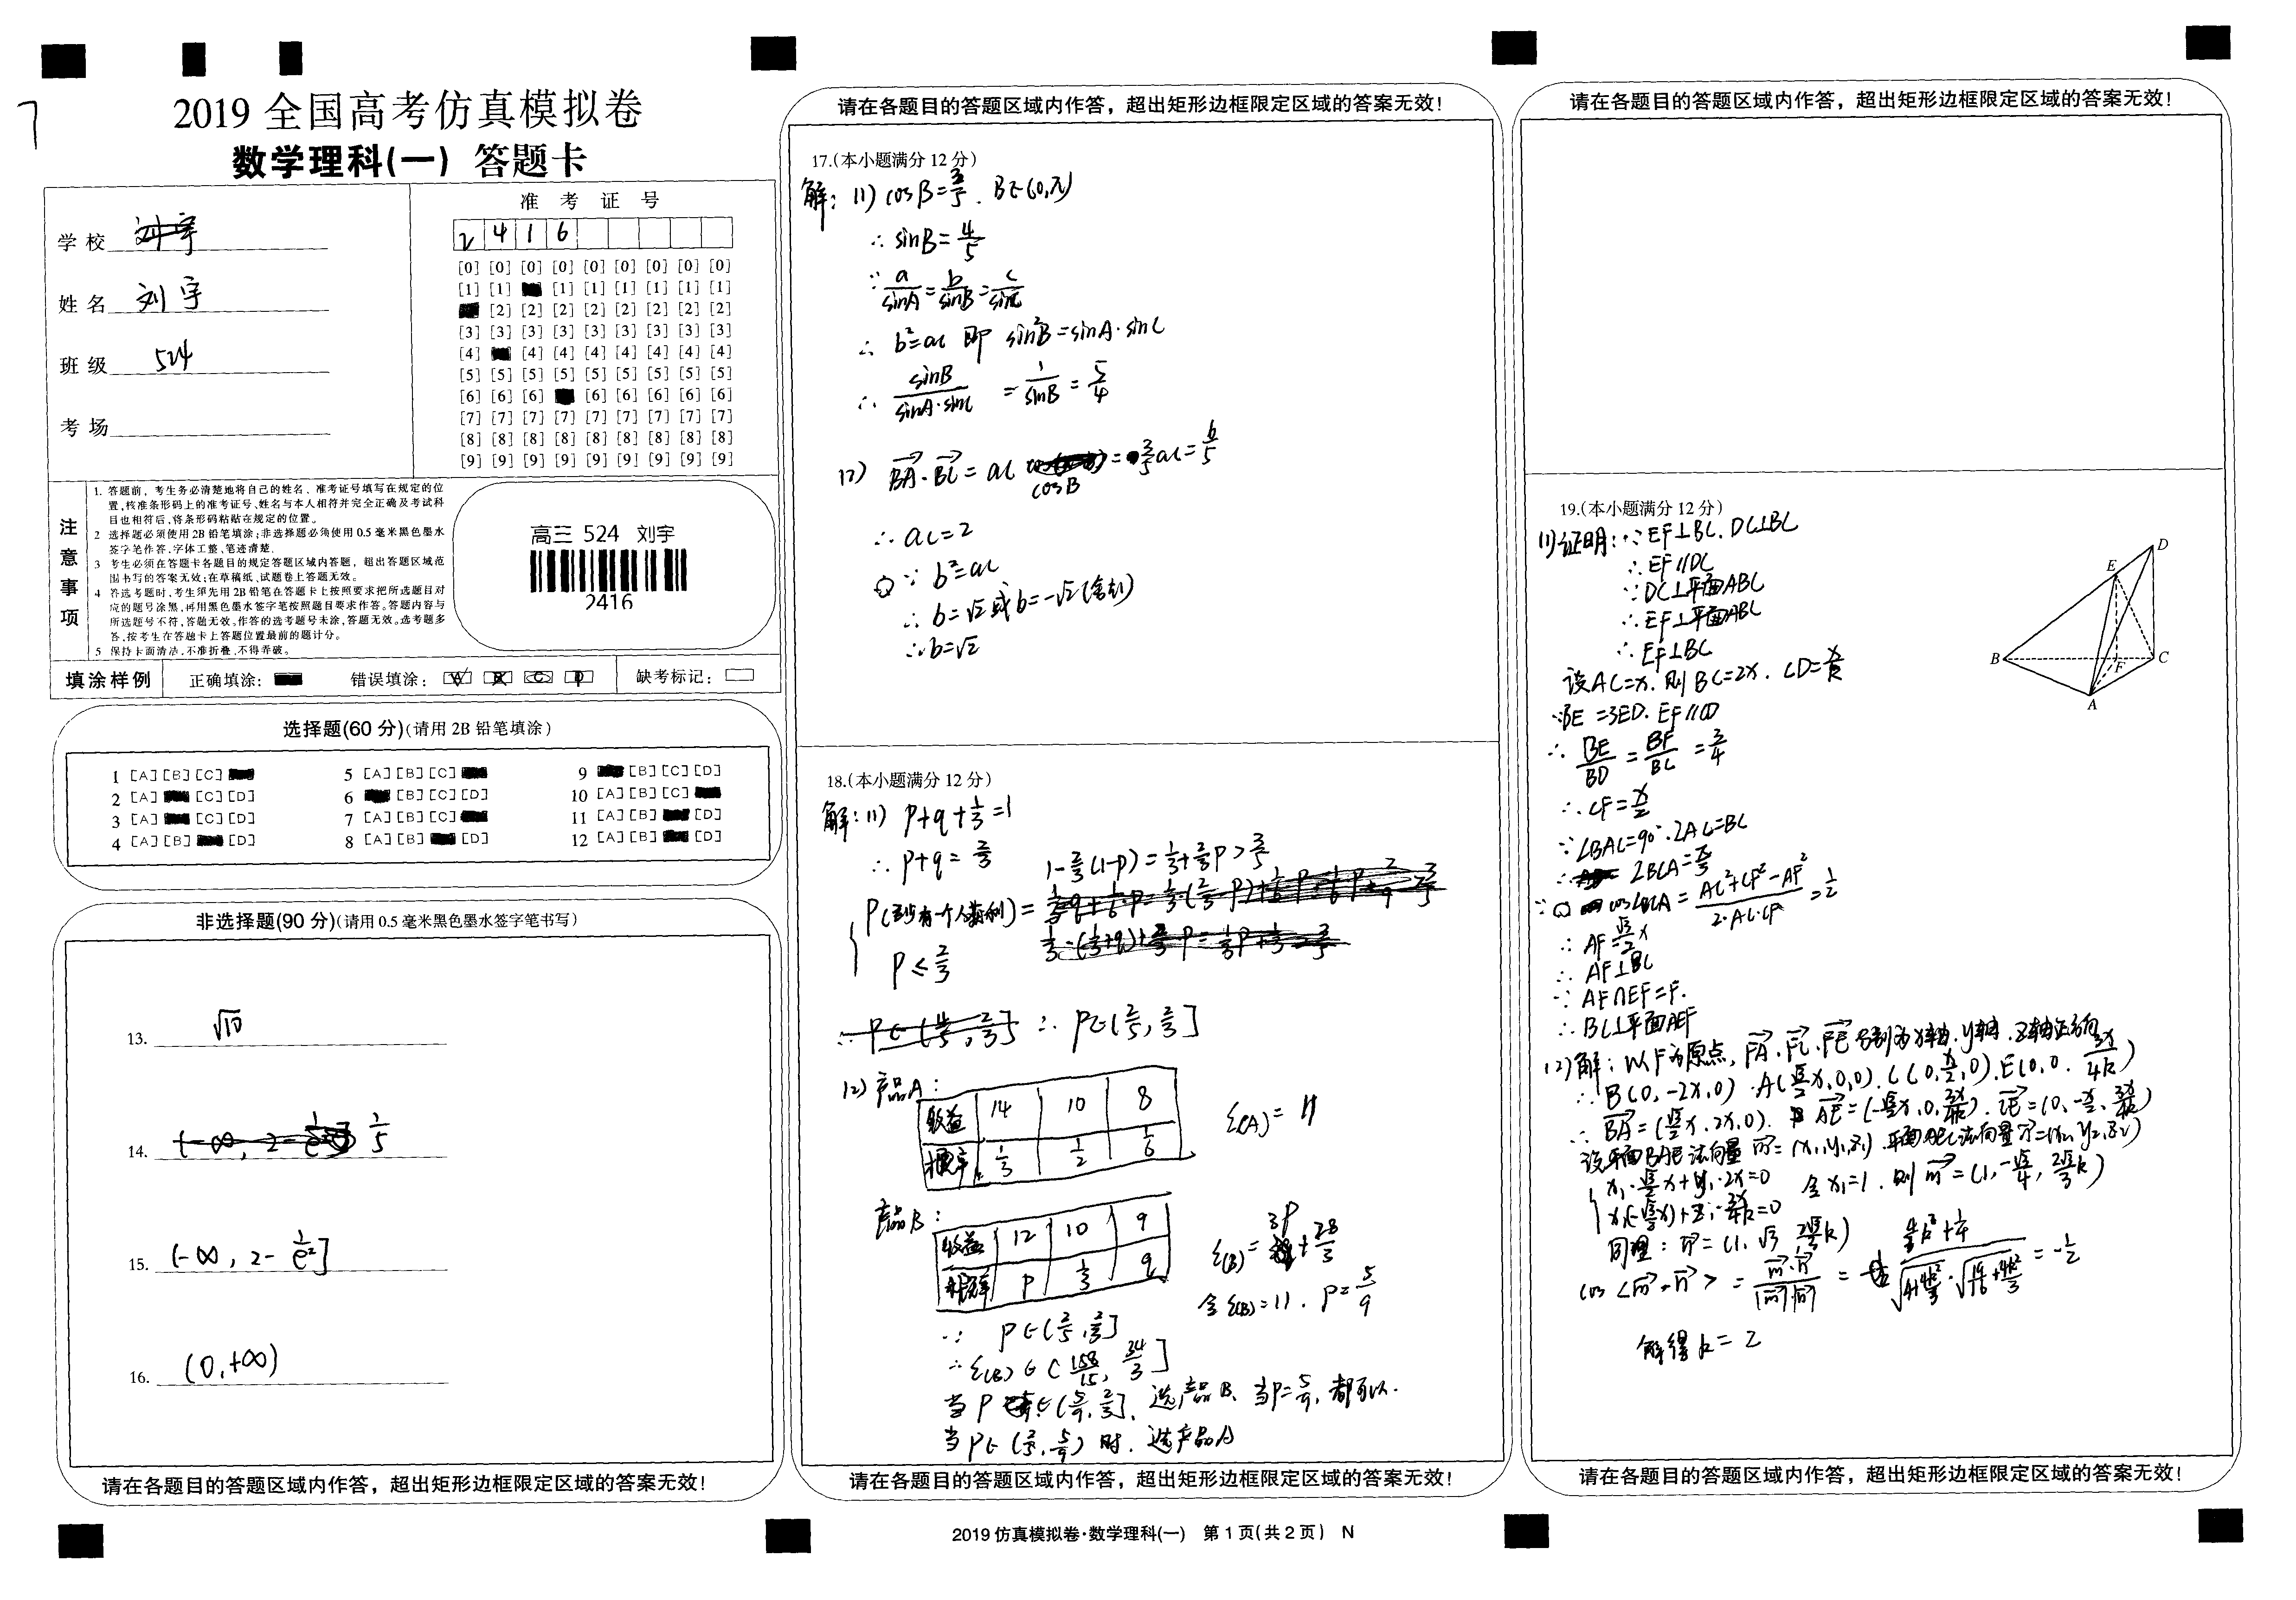 7
2019 全国高考仿真模拟卷
数学理科(一) 答题卡
学校
姓名 刘宇
班级 524
考场
准考证号
2 4 1 6
[0] [0] [0] [0] [0] [0] [0] [0] [0]
[1] [1] [1] [1] [1] [1] [1] [1]
[2] [2] [2] [2] [2] [2] [2] [2]
[3] [3] [3] [3] [3] [3] [3] [3] [3]
[4] [4] [4] [4] [4] [4] [4] [4]
[5] [5] [5] [5] [5] [5] [5] [5] [5]
[6] [6] [6] [6] [6] [6] [6] [6]
[7] [7] [7] [7] [7] [7] [7] [7] [7]
[8] [8] [8] [8] [8] [8] [8] [8] [8]
[9] [9] [9] [9] [9] [9] [9] [9] [9]
注意事项
1. 答题前，考生务必清楚地将自己的姓名、准考证号填写在规定的位
置,核准条形码上的准考证号、姓名与本人相符并完全正确及考试科
目也相符后,将条形码粘贴在规定的位置。
2 选择题必须使用2B铅笔填涂;非选择题必须使用0.5毫米黑色墨水
签字笔作答,字体工整、笔迹清楚.
3 考生必须在答题卡各题目的规定答题区域内答题，超出答题区域范
围书写的答案无效;在草稿纸、试题卷上答题无效。
4 答选考题时,考生须先用2B铅笔在答题卡上按照要求把所选题目对
应的题号涂黑,再用黑色墨水签字笔按照题目要求作答。答题内容与
所选题号不符,答题无效。作答的选考题号未涂,答题无效。选考题多
答,按考生在答题卡上答题位置最前的题计分。
5 保持卡面清洁,不准折叠、不得弄破。
高三 524 刘宇
2416
填涂样例 正确填涂: 错误填涂: 缺考标记:
选择题(60分)(请用2B铅笔填涂)
1 [A] [B] [C] 5 [A] [B] [C] 9 [B] [C] [D]
2 [A] [C] [D] 6 [B] [C] [D] 10 [A] [B] [C]
3 [A] [C] [D] 7 [A] [B] [C] 11 [A] [B] [D]
4 [A] [B] [D] 8 [A] [B] [D] 12 [A] [B] [D]
非选择题(90分)(请用0.5毫米黑色墨水签字笔书写)
13. √10
14. 1/5
15. (-∞, 2-1/e²]
16. (0,+∞)
请在各题目的答题区域内作答，超出矩形边框限定区域的答案无效!
请在各题目的答题区域内作答，超出矩形边框限定区域的答案无效!
17.(本小题满分12分)
解: (1) cosB=3/5. B∈(0,π)
∴ sinB=4/5
∵ a/sinA=b/sinB=c/sinC
∴ b²=ac 即 sin²B=sinA·sinC
∴ sinB/(sinA·sinC) = 1/sinB = 5/4
(2) BA·BC=ac cosB=3/5ac=6/5
∴ ac=2
∵ b²=ac
∴ b=√2或b=-√2(舍去)
∴b=√2
18.(本小题满分12分)
解: (1) p+q+1/3=1
∴ p+q=2/3
1-2/3(1-p)=1/3+2/3p>3/5
P(至少有一个人获利)=
p≤2/3
∴ p∈(2/5,2/3]
(2) 产品A:
收益 14 10 8
概率 1/3 1/2 1/6
E(A)=11
产品B:
收益 12 10 9
概率 p 1/3 q
E(B)=3p+28/3
令E(B)=11. p=5/9
∵ p∈(2/5,2/3]
∴ E(B)∈(158/15, 34/3]
当p∈(5/9,2/3]，选产品B、当p=5/9，都可以.
当p∈(2/5,5/9)时. 选产品A
请在各题目的答题区域内作答，超出矩形边框限定区域的答案无效!
2019 仿真模拟卷·数学理科(一) 第1页(共2页) N
请在各题目的答题区域内作答，超出矩形边框限定区域的答案无效!
19.(本小题满分12分)
(1)证明: ∵EF⊥BC. DC⊥BC
∴EF//DC
∵DC⊥平面ABC
∴EF⊥平面ABC
∴EF⊥BC
D
E
B
F
C
A
设AC=x. 则BC=2x. CD=x/k
∵BE=3ED. EF//CD
∴ BE/BD=BF/BC=3/4
∴CF=x/2
∵∠BAC=90°.2AC=BC
∴ ∠BCA=π/3
∵ cos∠BCA=(AC²+CF²-AF²)/(2·AC·CF)=1/2
∴ AF=√3/2x
∴ AF⊥BC
∵ AF∩EF=F.
∴ BC⊥平面AEF
(2)解: 以F为原点, FA、FC、FE分别为x轴、y轴、z轴正方向
∴B(0,-2x,0). A(√3/2x,0,0). C(0,x/2,0). E(0,0,3x/4k)
∴ BA=(√3/2x,2x,0). AE=(-√3/2x,0,3x/4k). CE=(0,-x/2,3x/4k)
设平面BAE法向量m=(x₁,y₁,z₁) 平面AEC法向量n=(x₂,y₂,z₂)
x₁·√3/2x+y₁·2x=0
x₁(-√3/2x)+z₁·3x/4k=0
令x₁=1. 则m=(1,-√3/4,2√3/3k)
同理: n=(1,√3,2√3/3k)
cos<m,n>=m·n/|m||n|= =-1/2
解得k=2
请在各题目的答题区域内作答，超出矩形边框限定区域的答案无效!